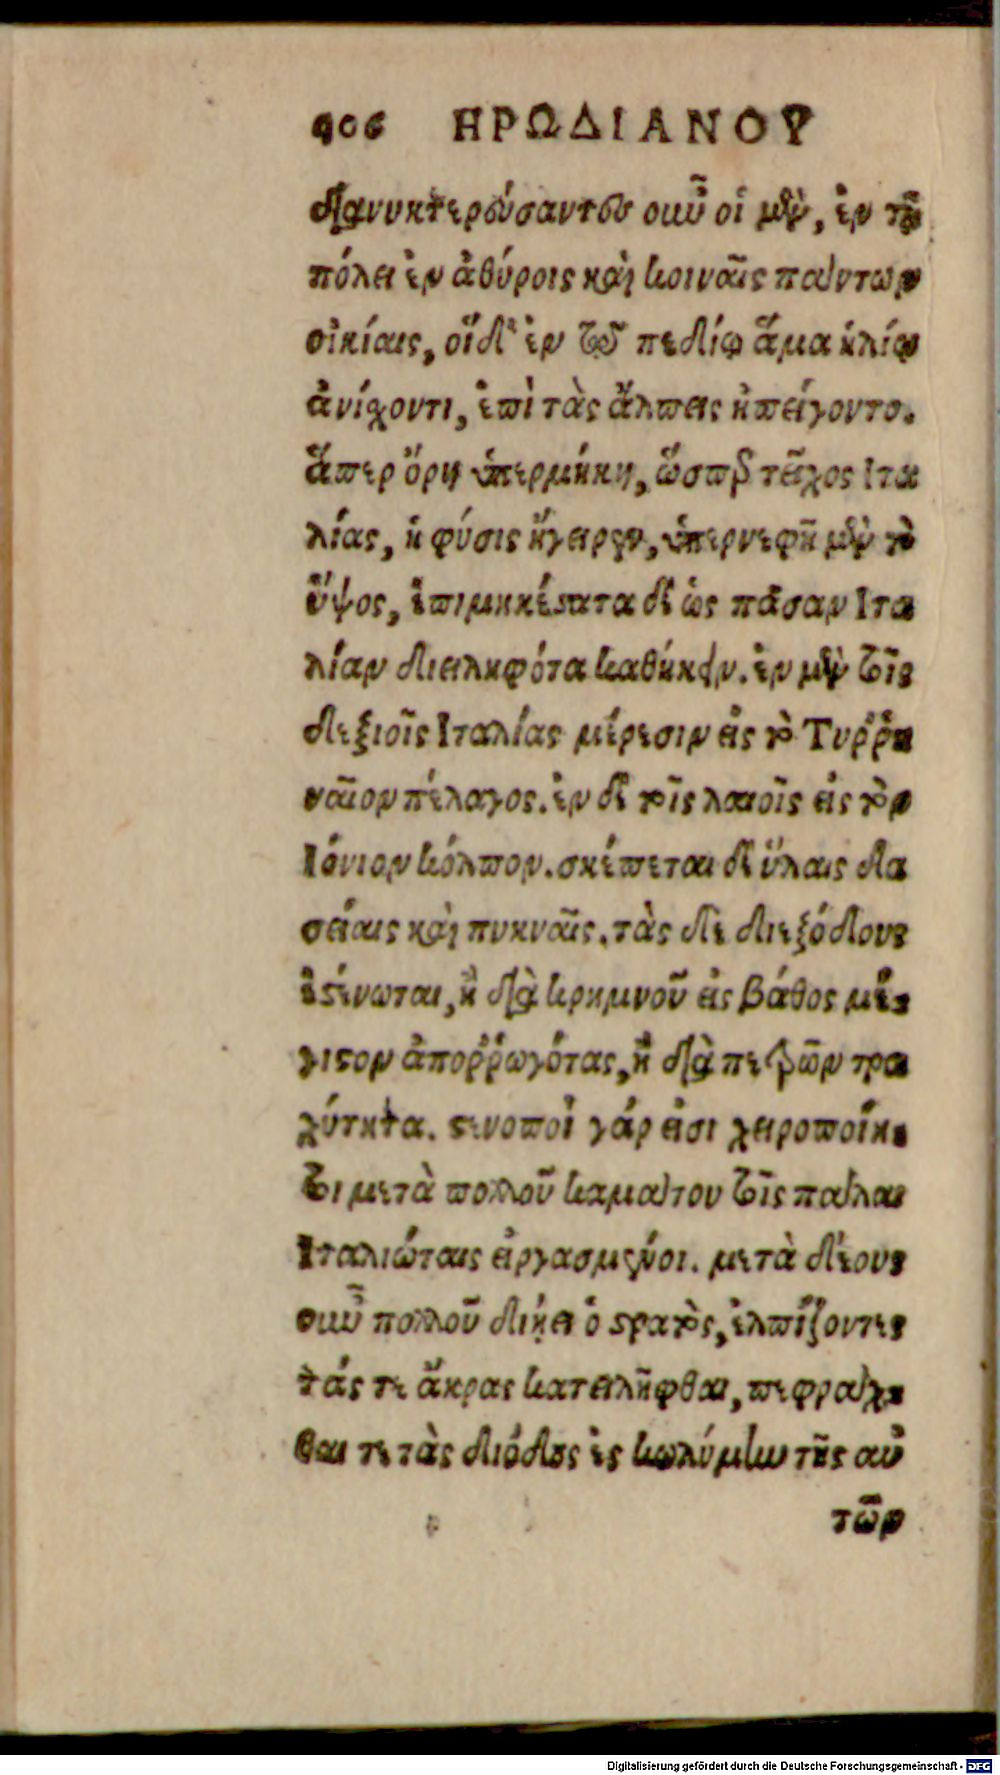 406 ΗΡΩΔΙΑΝΟΥ
διανυκτερεύσαντες οὖν οἱ μὲν, ἐν τῇ
πόλει ἐν ἀθύροις καὶ κοιναῖς πάντων
οἰκίαις, οἵ δ' ἐν τῷ πεδίῳ ἅμα ἡλίῳ
ἀνίχοντι, ἐπὶ τὰς ἄλπεις ἠπείγοντο.
ἅπερ ὄρη ὑπερμήκη, ὥσπερ τεῖχος Ιτα
λίας, ἡ φύσις ἤγειρεν, ὑπερνεφῆ μὲν τὸ
ὕψος, ἐπιμηκέστατα δὲ ὡς πᾶσαν Ιτα
λίαν διειληφότα καθήκειν. ἐν μὲν τοῖς
δεξιοῖς Ιταλίας μέρεσιν εἰς τὸ Τυῤῥη
ναῖον πέλαγος. ἐν δὲ τοῖς λαιοῖς εἰς τὸν
Ιόνιον κόλπον. σκέπεται δὲ ὕλαις δα
σείαις καὶ πυκναῖς. τὰς δὲ διεξόδους
ἐστένωται, ἢ διὰ κρημνοῦ εἰς βάθος μέ
γιστον ἀποῤῥωγότας, ἢ διὰ πετρῶν τρα
χύτητα. στενοποὶ γάρ εἰσι χειροποίη
τοι μετὰ πολλοῦ καμάτου τοῖς πάλαι
Ιταλιώταις εἰργασμένοι. μετὰ δέους
οὖν πολλοῦ διῄει ὁ στρατὸς, ἐλπίζοντες
τάς τε ἄκρας κατειλῆφθαι, πεφράχ
θαι τε τὰς διόδους ἐς κωλύμην τῆς αὐ
τῶν
Digitalisierung gefördert durch die Deutsche Forschungsgemeinschaft - DFG